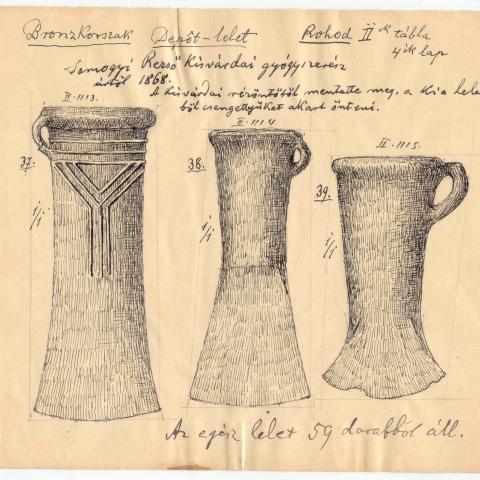 Bronzkorszak Depôt-lelet Rohod II ik tábla
4 ik lap
Somogyi Rezső kisvárdai gyógyszerész
úrtól 1868.
A kisvárdai rézöntőtől mentette meg, a ki a lelet
ből csengettyűket akart önteni.
II. 1113.
II. 1114.
II. 1115.
37.
38.
39.
1/1
1/1
1/1
Az egész lelet 59 darabból áll.